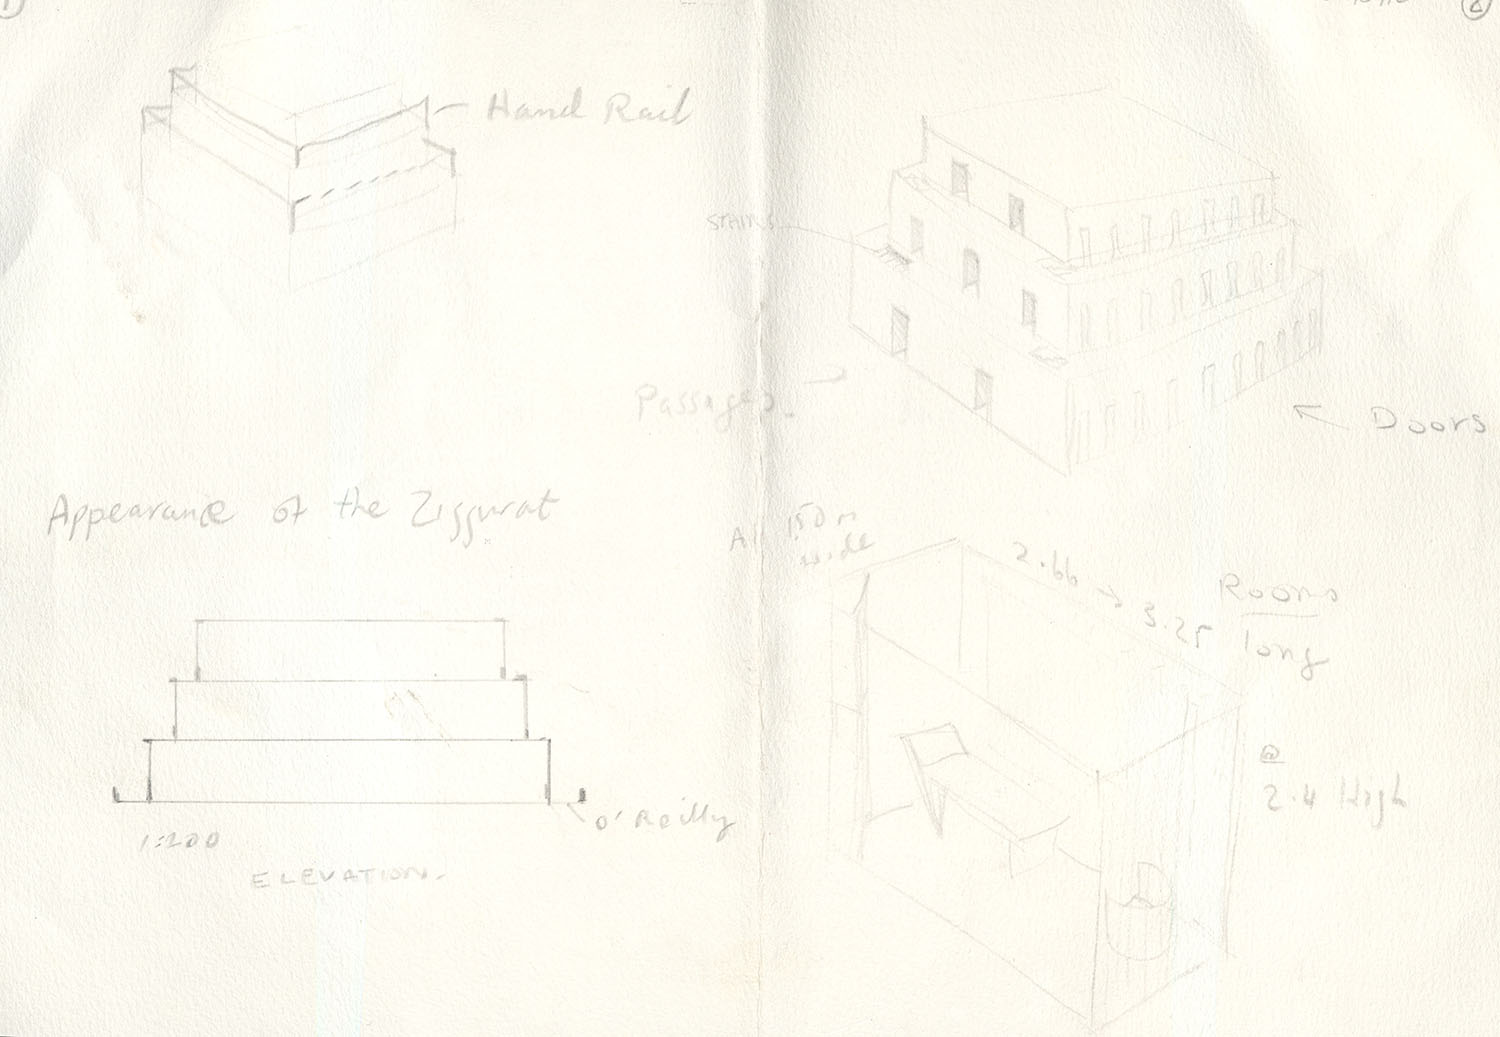 1
2
Hand Rail
STAIRS
Passages
Doors
Appearance of the Ziggurat
All 1.50 m
wide
2.66 → 3.25
Rooms
long
@
2.4 High
O'Reilly
1:200
ELEVATION.